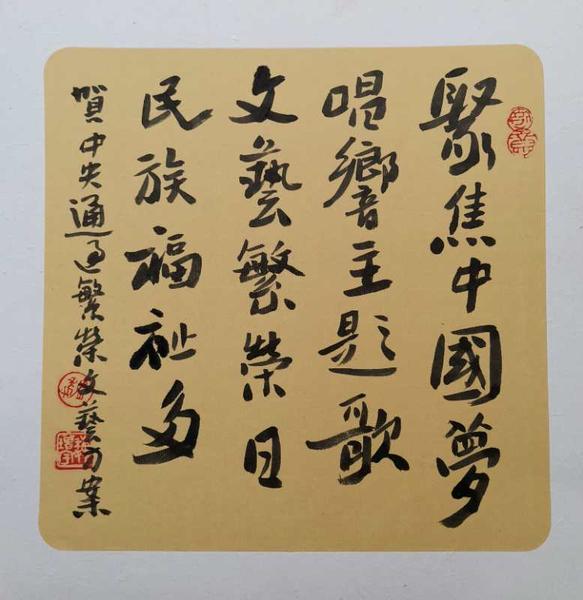 聚焦中國夢
唱響主題歌
文藝繁榮日
民族福祉多
賀中央通过繁榮文藝方案